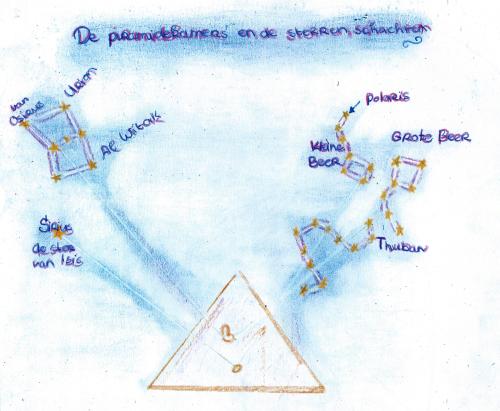 De piramidekamers en de sterren, schachten
van
Osirus
Orion
Al Nitak
Polaris
Kleine
Beer
Grote Beer
Thuban
Sirius
de ster
van Isis